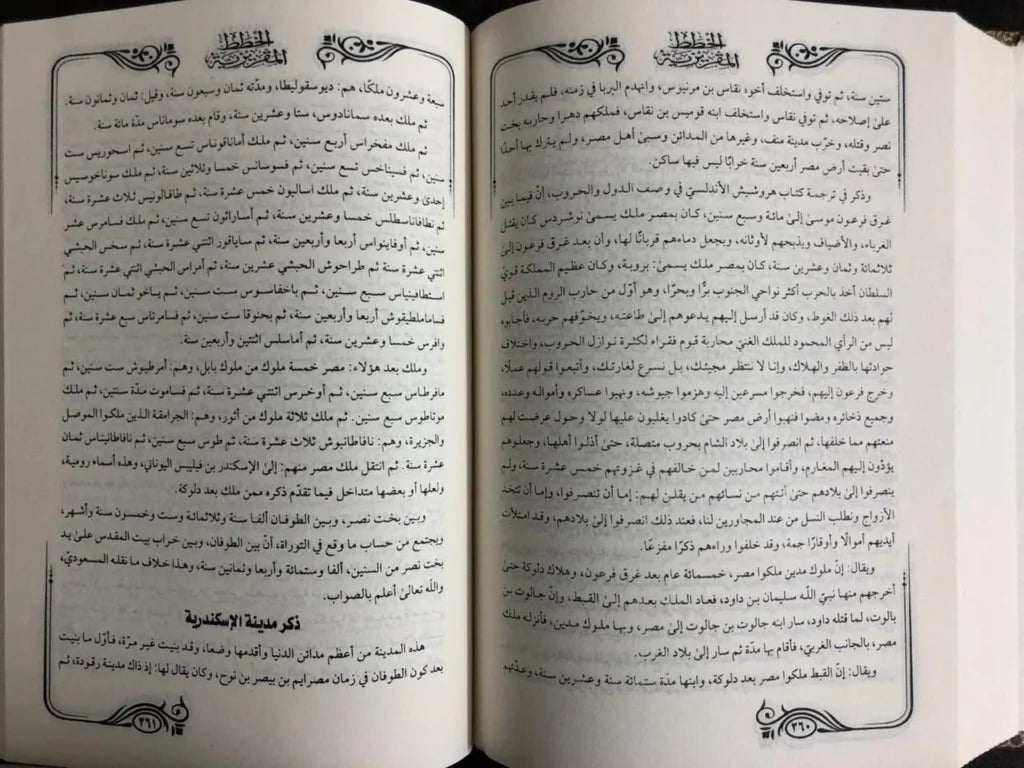 الخطط المقريزية
ستين سنة، ثم توفي واستخلف أخوه نقاس بن مرنيوس، وانهدم البربا في زمنه، فلم يقدر أحد
على إصلاحه، ثم توفي نقاس واستخلف ابنه قوميس بن نقاس، فملكهم دهرا وحاربه بخت
نصر وقتله، وخرّب مدينة منف، وغيرها من المدائن وسبىٰ أهل مصر، ولم يترك بها أحدًا
حتىٰ بقيت أرض مصر أربعين سنة خرابًا ليس فيها ساكن.
وذكر في ترجمة كتاب هروشيش الأندلسيّ في وصف الدول والحروب، أنّ فيما بين
غرق فرعون موسىٰ إلىٰ مائة وسبع سنين، كان بمصر ملك يسمىٰ نوشردس كان يقتل
الغرباء، والأضياف ويذبحهم لأوثانه، ويجعل دماءهم قربانًا لها، وأن بعد غرق فرعون إلىٰ
ثلاثمائة وثمان وعشرين سنة، كان بمصر ملك يسمىٰ: بروبة، وكان عظيم المملكة قويّ
السلطان أخذ بالحرب أكثر نواحي الجنوب برًّا وبحرًا، وهو أوّل من حارب الروم الذين قيل
لهم بعد ذلك الغوط، وكان قد أرسل إليهم يدعوهم إلىٰ طاعته، ويخوّفهم حربه، فأجابوه
ليس من الرأي المحمود للملك الغنيّ محاربة قوم فقراء لكثرة نوازل الحروب، واختلاف
حوادثها بالظفر والهلاك، وإنا لا ننتظر مجيئك، بل نسرع لغارتك، وأتبعوا قولهم عملًا،
وخرج فرعون إليهم، فخرجوا مسرعين إليه وهزموا جيوشه، ونهبوا عساكره وأمواله وعدده،
وجميع ذخائره ومضوا فنهبوا أرض مصر حتىٰ كادوا يغلبون عليها لولا وحول عرضت لهم
منعتهم مما خلفها، ثم انصرفوا إلىٰ بلاد الشام بحروب متصلة، حتىٰ أذلوا أهلها، وجعلوهم
يؤدّون إليهم المغارم، وأقاموا محاربين لمن خالفهم في غزوتهم خمس عشرة سنة، ولم
ينصرفوا إلىٰ بلادهم حتىٰ أتتهم من نسائهم من يقلن لهم: إما أن تنصرفوا، وإما أن نتخذ
الأزواج ونطلب النسل من عند المجاورين لنا، فعند ذلك انصرفوا إلىٰ بلادهم، وقد امتلأت
أيديهم أموالًا وأوقارًا جمة، وقد خلفوا وراءهم ذكرًا مفزعًا.
ويقال: إنّ ملوك مدين ملكوا مصر، خمسمائة عام بعد غرق فرعون، وهلاك دلوكة حتىٰ
أخرجهم منها نبيّ اللَّه سليمان بن داود، فعاد الملك بعدهم إلىٰ القبط، وإنّ جالوت بن
بالوت، لما قتله داود، سار ابنه جالوت بن جالوت إلىٰ مصر، وبها ملوك مدين، فأنزله ملك
مصر، بالجانب الغربيّ، فأقام بها مدّة ثم سار إلىٰ بلاد الغرب.
ويقال: إنّ القبط ملكوا مصر بعد دلوكة، وابنها مدّة ستمائة سنة وعشرين سنة، وعدّتهم
٣٦٠
الخطط المقريزية
سبعة وعشرون ملكًا، هم: ديوسقوليطا، ومدّته ثمان وسبعون سنة، وقيل: ثمان وثمانون سنة.
ثم ملك بعده سمانادوس، ستا وعشرين سنة، وقام بعده سوماناس مدّة مائة سنة.
ثم ملك مفخراس أربع سنين، ثم ملك أماناقوناس تسع سنين، ثم اسحوريس ست
سنين، ثم فسيناخس تسع سنين، ثم فسوسانس خمسا وثلاثين سنة، ثم ملك سوناخوسيس
إحدىٰ وعشرين سنة، ثم ملك اساليون خمس عشرة سنة، ثم طافالونيس ثلاث عشرة سنة،
ثم نطافاناسطلس خمسا وعشرين سنة، ثم أساراثون تسع سنين، ثم ملك فسامرس عشر
سنين، ثم أوفاينواس أربعا وأربعين سنة، ثم ساياقور اثنتي عشرة سنة، ثم سخس الحبشي
اثنتي عشرة سنة ثم طراحوش الحبشي عشرين سنة، ثم أمراس الحبشي اثنتي عشرة سنة، ثم
استطافيناس سبع سنين، ثم باخفاسوس ست سنين، ثم ياخو ثمان سنين، ثم
فساماملطيقوش أربعا وأربعين سنة، ثم بحنوقا ست سنين، ثم فسامرتاس سبع عشرة سنة، ثم
وافرس خمسا وعشرين سنة، ثم أماسلس اثنتين وأربعين سنة.
وملك بعد هؤلاء: مصر خمسة ملوك من ملوك بابل، وهم: أمرطيوش ست سنين، ثم
مافرطاس سبع سنين، ثم أوخرس اثنتي عشرة سنة، ثم فسامرت مدّة سنتين، ثم ملك
موتاطوس سبع سنين. ثم ملك ثلاثة ملوك من أثور، وهم: الجرامقة الذين ملكوا الموصل
والجزيرة، وهم: نافاطانبوش ثلاث عشرة سنة، ثم طوس سبع سنين، ثم نافاطانيناس ثمان
عشرة سنة. ثم انتقل ملك مصر منهم: إلىٰ الإسكندر بن فيلبس اليوناني، وهذه أسماء رومية،
ولعلها أو بعضها متداخل فيما تقدّم ذكره ممن ملك بعد دلوكة.
وبين بخت نصر، وبين الطوفان ألفا سنة وثلاثمائة وست وخمسون سنة وأشهر،
ويجتمع من حساب ما وقع في التوراة، أنّ بين الطوفان، وبين خراب بيت المقدس علىٰ يد
بخت نصر من السنين، ألفا وستمائة وأربعا وثمانين سنة، وهذا خلاف ما نقله المسعوديّ،
واللَّه تعالىٰ أعلم بالصواب.
ذكر مدينة الإسكندرية
هذه المدينة من أعظم مدائن الدنيا وأقدمها وضعا، وقد بنيت غير مرّة، فأوّل ما بنيت
بعد كون الطوفان في زمان مصرايم بن بيصر بن نوح، وكان يقال لها: إذ ذاك مدينة رقودة، ثم
٣٦١